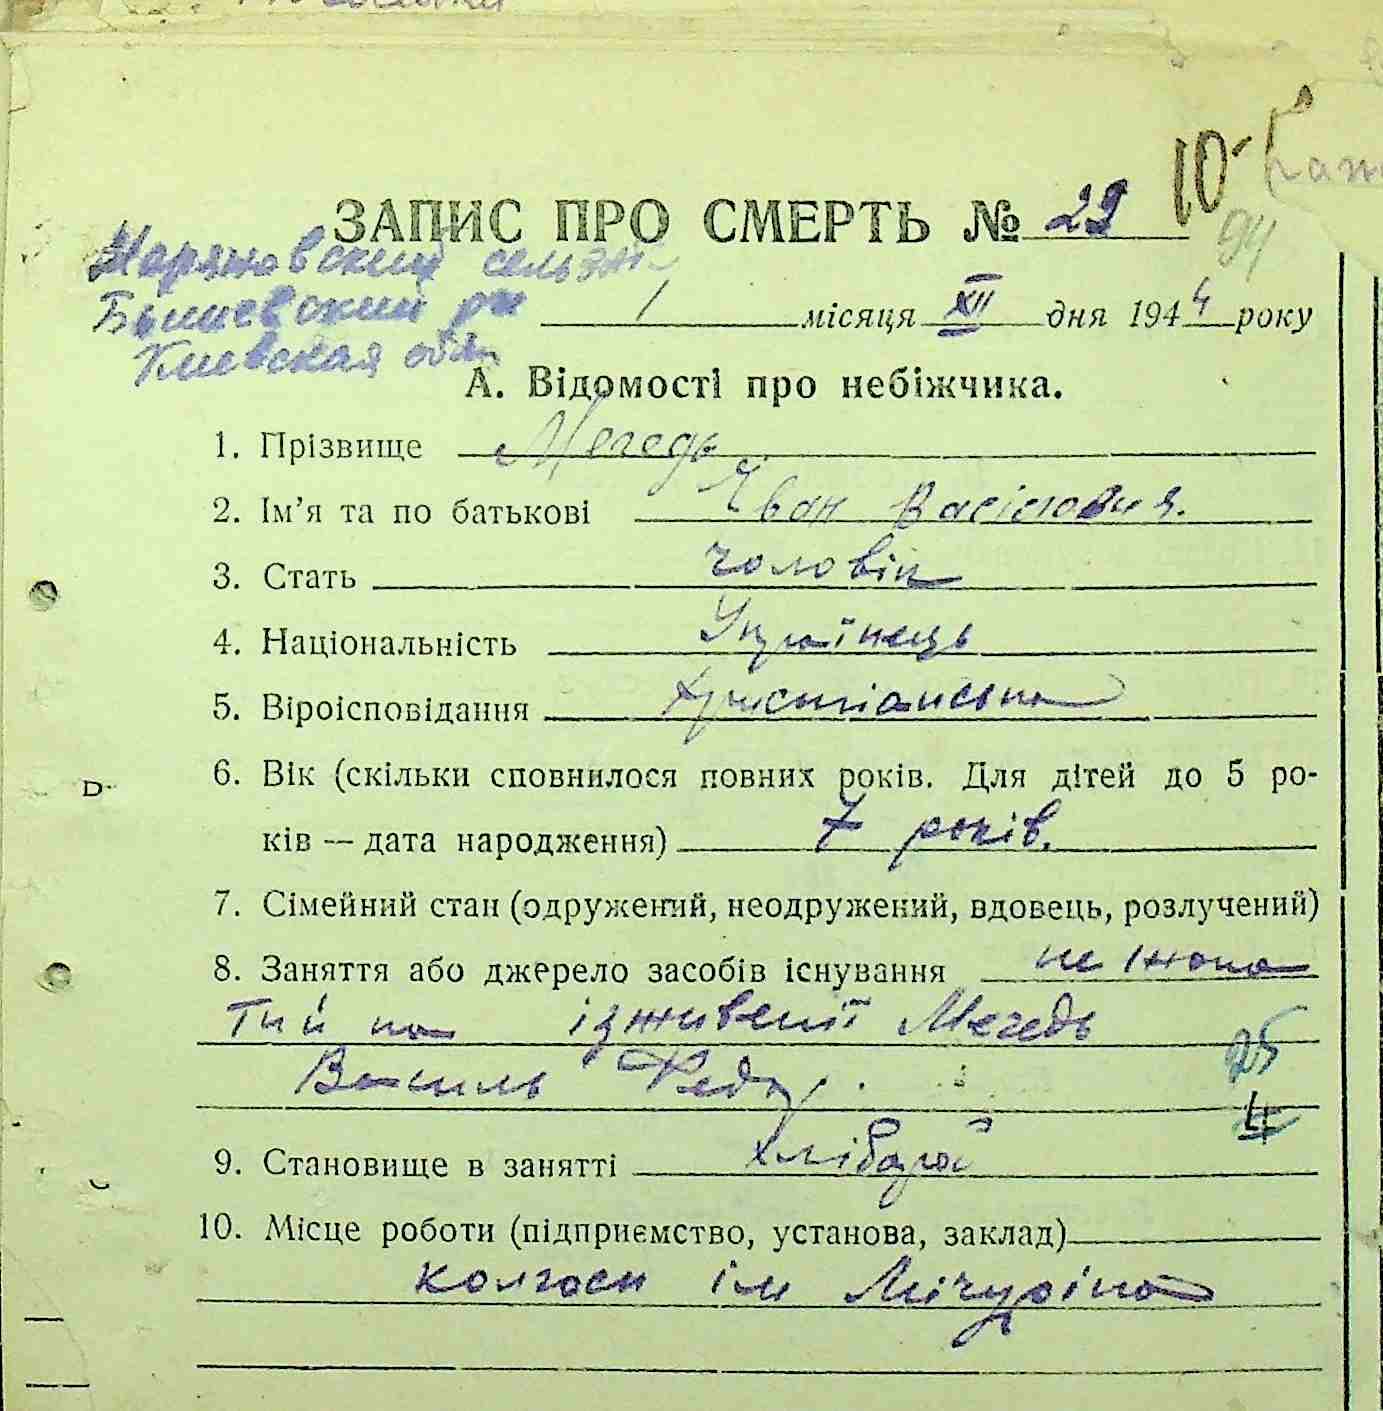 ЗАПИС ПРО СМЕРТЬ № 29
10
94
Марʼяновский сельзаг
Бышевский рн
Киевская обл
1 місяця XII дня 1944 року
А. Відомості про небіжчика.
1. Прізвище Мегедь
2. Ім’я та по батькові Іван Васільович.
3. Стать чоловік
4. Національність Українець
5. Віроісповідання християнська
6. Вік (скільки сповнилося повних років. Для дітей до 5 ро-
ків — дата народження) 7 років.
7. Сімейний стан (одружений, неодружений, вдовець, розлучений)
8. Заняття або джерело засобів існування не
на іздивенії Мегедь
Василь Фед.
25
4
9. Становище в занятті хлібороб
10. Місце роботи (підприємство, установа, заклад)
колгосп ім Мічуріна